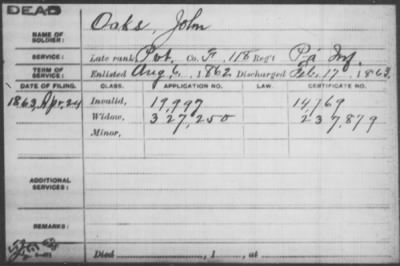 DEAD
NAME OF SOLDIER: Oaks, John
SERVICE: Late rank Pvt. Co. F. 118 Reg't Pa Inf.
TERM OF SERVICE: Enlisted Aug 6, 1862 Discharged Feb. 17, 1863
DATE OF FILING. CLASS. APPLICATION NO. LAW. CERTIFICATE NO.
1863, Apr. 24 Invalid, 19,997 14,769
Widow, 327,250 237,879
Minor,
ADDITIONAL SERVICES:
REMARKS:
Died , 1 , at